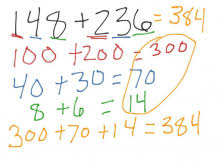 148+236=384
100+200=300
40+30=70
8+6=14
300+70+14=384